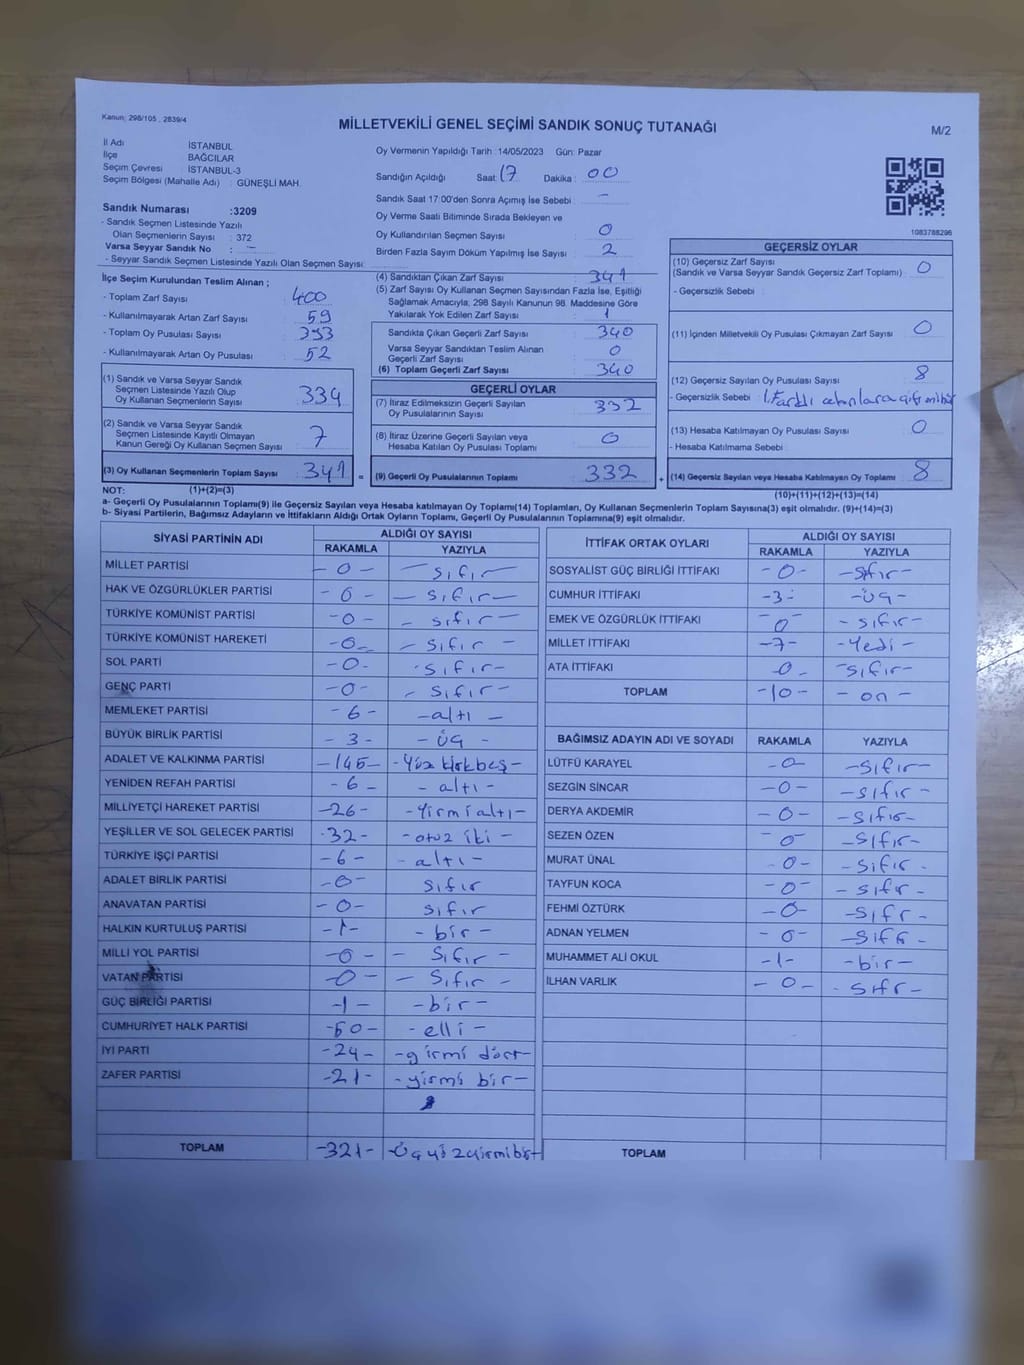 Kanun: 298/105 , 2839/4
MİLLETVEKİLİ GENEL SEÇİMİ SANDIK SONUÇ TUTANAĞI
M/2
İl Adı : İSTANBUL
İlçe : BAĞCILAR
Seçim Çevresi : İSTANBUL-3
Seçim Bölgesi (Mahalle Adı) : GÜNEŞLİ MAH.
Oy Vermenin Yapıldığı Tarih :14/05/2023 Gün: Pazar
Sandığın Açıldığı Saat : 17 Dakika : 00
Sandık Saat 17:00'den Sonra Açımış İse Sebebi : -
Oy Verme Saati Bitiminde Sırada Bekleyen ve
Oy Kullandırılan Seçmen Sayısı : 0
Birden Fazla Sayım Döküm Yapılmış İse Sayısı : 2
1083788296
Sandık Numarası :3209
- Sandık Seçmen Listesinde Yazılı
Olan Seçmenlerin Sayısı : 372
Varsa Seyyar Sandık No : -
- Seyyar Sandık Seçmen Listesinde Yazılı Olan Seçmen Sayısı:
İlçe Seçim Kurulundan Teslim Alınan ;
- Toplam Zarf Sayısı : 400
- Kullanılmayarak Artan Zarf Sayısı : 59
- Toplam Oy Pusulası Sayısı : 393
- Kullanılmayarak Artan Oy Pusulası : 52
(1) Sandık ve Varsa Seyyar Sandık
Seçmen Listesinde Yazılı Olup
Oy Kullanan Seçmenlerin Sayısı : 334
(2) Sandık ve Varsa Seyyar Sandık
Seçmen Listesinde Kayıtlı Olmayan
Kanun Gereği Oy Kullanan Seçmen Sayısı : 7
(3) Oy Kullanan Seçmenlerin Toplam Sayısı : 341
(1)+(2)=(3)
(4) Sandıktan Çıkan Zarf Sayısı : 341
(5) Zarf Sayısı Oy Kullanan Seçmen Sayısından Fazla İse, Eşitliği
Sağlamak Amacıyla, 298 Sayılı Kanunun 98. Maddesine Göre
Yakılarak Yok Edilen Zarf Sayısı : 1
Sandıkta Çıkan Geçerli Zarf Sayısı : 340
Varsa Seyyar Sandıktan Teslim Alınan
Geçerli Zarf Sayısı : 0
(6) Toplam Geçerli Zarf Sayısı : 340
GEÇERLİ OYLAR
(7) İtiraz Edilmeksizin Geçerli Sayılan
Oy Pusulalarının Sayısı : 332
(8) İtiraz Üzerine Geçerli Sayılan veya
Hesaba Katılan Oy Pusulaları Toplamı : 0
= (9) Geçerli Oy Pusulalarının Toplamı : 332
GEÇERSİZ OYLAR
(10) Geçersiz Zarf Sayısı
(Sandık ve Varsa Seyyar Sandık Geçersiz Zarf Toplamı) : 0
- Geçersizlik Sebebi :
(11) İçinden Milletvekili Oy Pusulası Çıkmayan Zarf Sayısı : 0
(12) Geçersiz Sayılan Oy Pusulası Sayısı : 8
- Geçersizlik Sebebi : Farklı alanlara çift mühür
(13) Hesaba Katılmayan Oy Pusulası Sayısı : 0
- Hesaba Katılmama Sebebi :
+ (14) Geçersiz Sayılan veya Hesaba Katılmayan Oy Toplamı : 8
(10)+(11)+(12)+(13)=(14)
NOT:
a- Geçerli Oy Pusulalarının Toplamı(9) ile Geçersiz Sayılan veya Hesaba katılmayan Oy Toplamı(14) Toplamları, Oy Kullanan Seçmenlerin Toplam Sayısına(3) eşit olmalıdır. (9)+(14)=(3)
b- Siyasi Partilerin, Bağımsız Adayların ve İttifakların Aldığı Ortak Oyların Toplamı, Geçerli Oy Pusulalarının Toplamına(9) eşit olmalıdır.
SİYASİ PARTİNİN ADI ALDIĞI OY SAYISI
RAKAMLA YAZIYLA
MİLLET PARTİSİ -0- -sıfır-
HAK VE ÖZGÜRLÜKLER PARTİSİ -0- -sıfır-
TÜRKİYE KOMÜNİST PARTİSİ -0- -sıfır-
TÜRKİYE KOMÜNİST HAREKETİ -0- -sıfır-
SOL PARTİ -0- -sıfır-
GENÇ PARTİ -0- -sıfır-
MEMLEKET PARTİSİ -6- -altı-
BÜYÜK BİRLİK PARTİSİ -3- -üç-
ADALET VE KALKINMA PARTİSİ -145- -Yüz kırkbeş-
YENİDEN REFAH PARTİSİ -6- -altı-
MİLLİYETÇİ HAREKET PARTİSİ -26- -Yirmialtı-
YEŞİLLER VE SOL GELECEK PARTİSİ -32- -otuz iki-
TÜRKİYE İŞÇİ PARTİSİ -6- -altı-
ADALET BİRLİK PARTİSİ -0- sıfır
ANAVATAN PARTİSİ -0- sıfır
HALKIN KURTULUŞ PARTİSİ -1- -bir-
MİLLİ YOL PARTİSİ -0- -sıfır-
VATAN PARTİSİ -0- -sıfır-
GÜÇ BİRLİĞİ PARTİSİ -1- -bir-
CUMHURİYET HALK PARTİSİ -50- -elli-
İYİ PARTİ -24- -yirmi dört-
ZAFER PARTİSİ -21- -yirmi bir-
TOPLAM -321- -Üçyüzyirmibir-
İTTİFAK ORTAK OYLARI ALDIĞI OY SAYISI
RAKAMLA YAZIYLA
SOSYALİST GÜÇ BİRLİĞİ İTTİFAKI -0- -sıfır-
CUMHUR İTTİFAKI -3- -üç-
EMEK VE ÖZGÜRLÜK İTTİFAKI -0- -sıfır-
MİLLET İTTİFAKI -7- -Yedi-
ATA İTTİFAKI -0- -sıfır-
TOPLAM -10- -on-
BAĞIMSIZ ADAYIN ADI VE SOYADI RAKAMLA YAZIYLA
LÜTFÜ KARAYEL -0- -sıfır-
SEZGİN SİNCAR -0- -sıfır-
DERYA AKDEMİR -0- -sıfır-
SEZEN ÖZEN -0- -sıfır-
MURAT ÜNAL -0- -sıfır-
TAYFUN KOCA -0- -sıfır-
FEHMİ ÖZTÜRK -0- -sıfır-
ADNAN YELMEN -0- -sıfır-
MUHAMMET ALİ OKUL -1- -bir-
İLHAN VARLIK -0- -sıfır-
TOPLAM